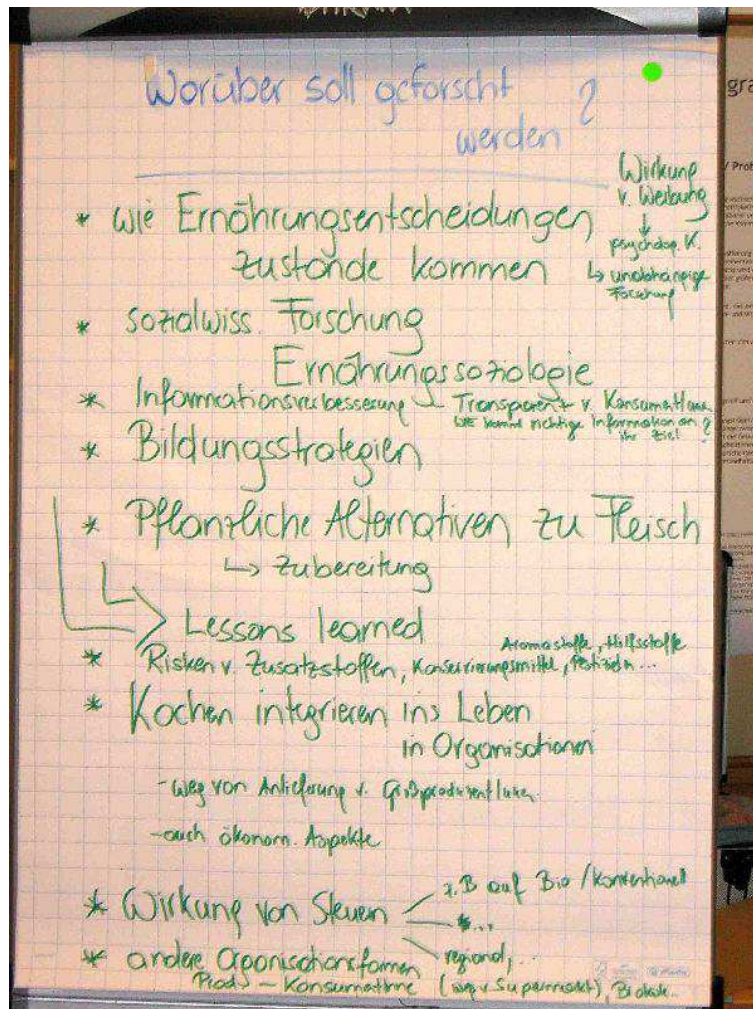 Worüber soll geforscht
werden?
Wirkung
v. Werbung
psycholog. K.
↳ unabhängige
Forschung
* wie Ernährungsentscheidungen
zustande kommen
* sozialwiss. Forschung
Ernährungssoziologie
* Informationsverbesserung – Transparenz v. KonsumentInnen
wie kommt richtige Information an ihr Ziel?
* Bildungsstrategien
* Pflanzliche Alternativen zu Fleisch
↳ Zubereitung
Lessons learned
Aromastoffe, Hilfsstoffe
* Risken v. Zusatzstoffen, Konservierungsmittel, Pestiziden...
* Kochen integrieren ins Leben
in Organisationen
- weg von Anlieferung v. GroßproduzentInnen
- auch ökonom. Aspekte
z.B auf Bio / Konventionell
* Wirkung von Steuern
*...
regional, ..
* andere Organisationsformen
Prod. – KonsumentInne (weg v Supermarkt),